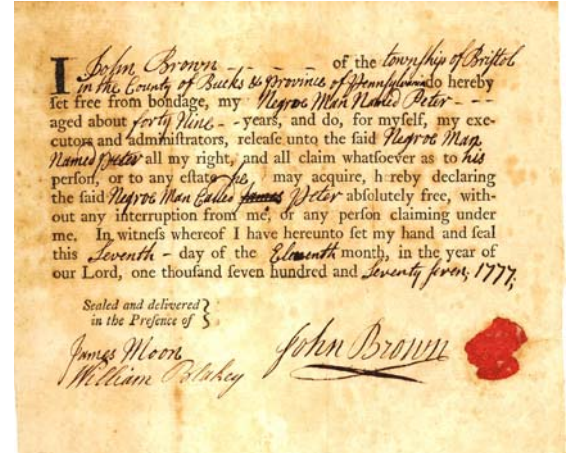 I John Brown - - - - - of the township of Bristol
in the County of Bucks & Province of Pennsylvania do hereby
ſet free from bondage, my Negroe Man Named Peter - - -
aged about forty Nine - - years, and do, for myſelf, my exe-
cutors and adminiſtrators, releaſe unto the ſaid Negroe Man
Named Peter all my right, and all claim whatſoever as to his
perſon, or to any eſtate he, may acquire, h reby declaring
the ſaid Negroe Man Called James Peter abſolutely free, with-
out any interruption from me, or any perſon claiming under
me. In witneſs whereof I have hereunto ſet my hand and ſeal
this Seventh - day of the Eleventh month, in the year of
our Lord, one thouſand ſeven hundred and Seventy ſeven, 1777,
Sealed and delivered }
in the Preſence of }
James Moore
William Blakey
John Brown